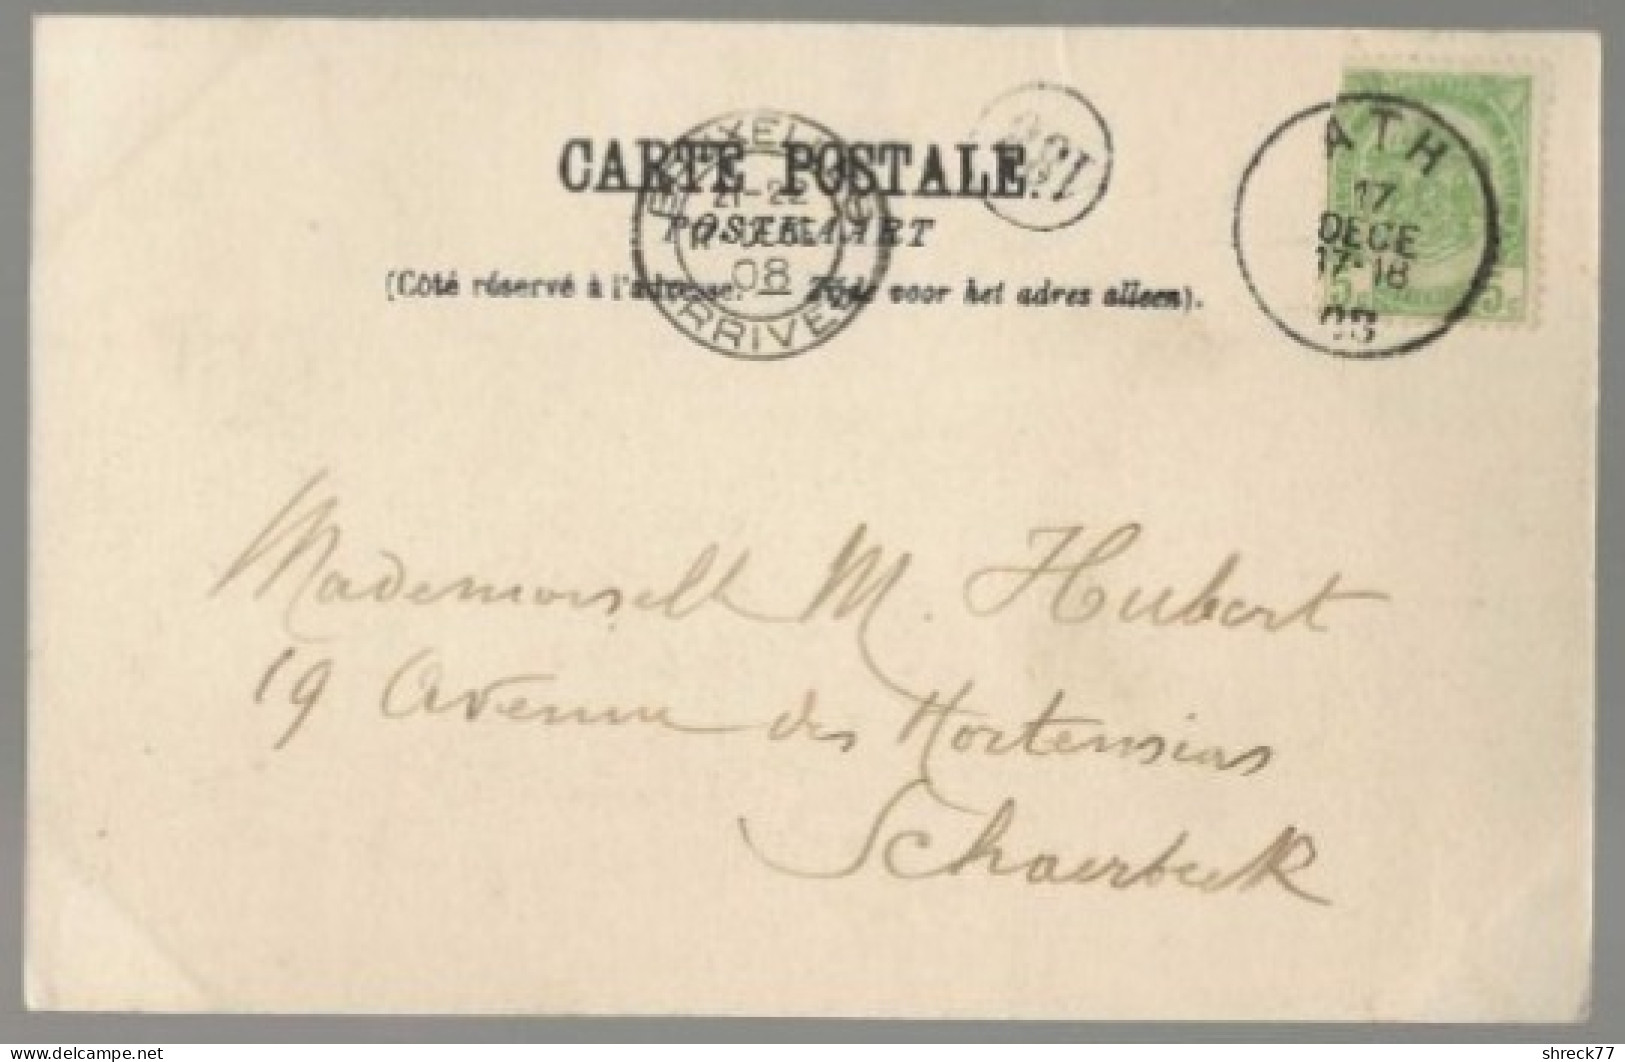 CARTE POSTALE.
POSTKAART
(Côté réservé à l'adresse. Zijde voor het adres alleen).
BRUXELLES
21-22
08
ARRIVEE
ATH
17
DECE
17-18
08
5c 5c
Mademoiselle M. Hubert
19 Avenue des Hortensias
Schaerbeek
delcampe.net
shreck77